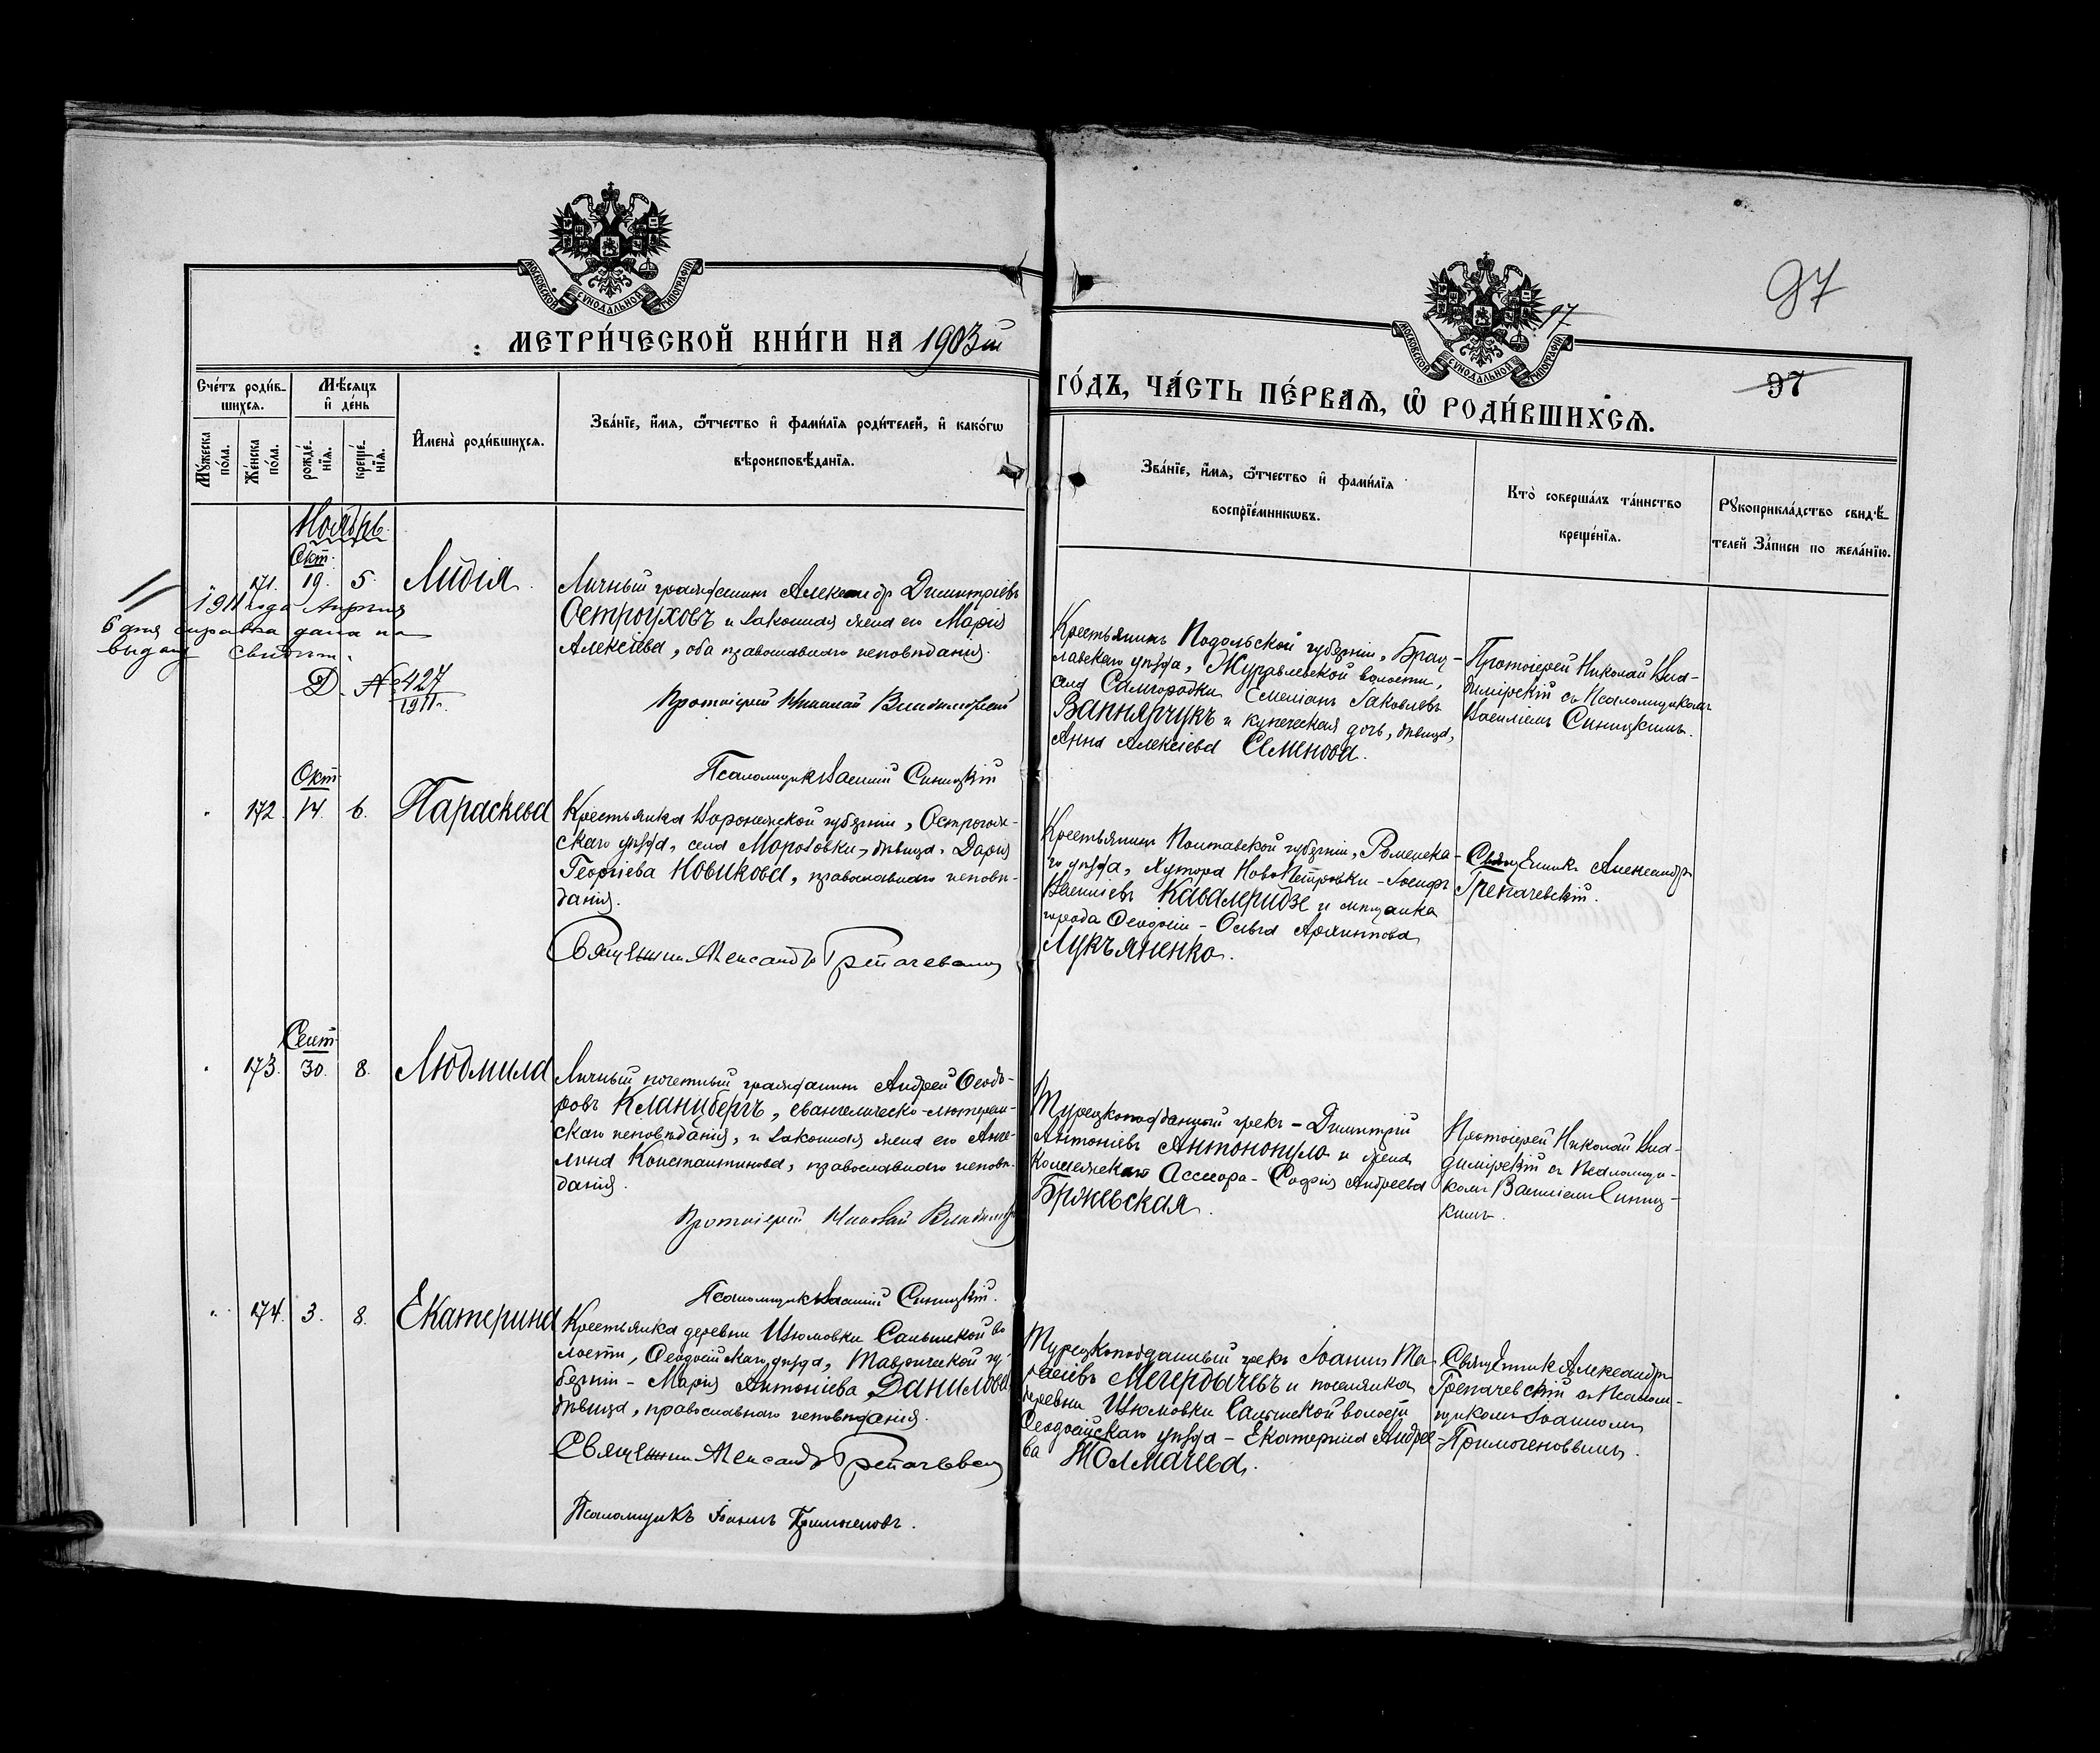 МОСКОВСКОЙ СѴНОДАЛЬНОЙ ТИПОГРАФІИ
МЕТРИ́ЧЕСКОЙ КНИ́ГИ НА 1903ій
Сче́тъ роди́в-
шихсѧ.
Мѣ́сѧцъ
и҆ де́нь
Мꙋ́жеска
по́ла.
Же́нска
по́ла.
рожде́-
нїѧ.
креще́-
нїѧ.
И҆мена̀ роди́вшихсѧ.
Зва́нїе, и҆́мѧ, ѻ҆́тчество и҆ фами́лїѧ роди́телей, и҆ како́гѡ
вѣроисповѣ́данїѧ.
Ноябрь
Окт.
171. 19. 5. Лидія.
Личный гражданинъ Александръ Димитріевъ
Остроуховъ и законная жена его Марія
Алексіева, оба православнаго исповѣданія.
Протоіерей Николай Владимірскій
Псаломщикъ Василій Синицкій
1911 года Апрѣля
6 дня справка дана на
выдачу свидѣт.
Д. № 427
1911 г.
Окт.
172. 14. 6. Параскева
Крестьянка Воронежской губерніи, Острогож-
скаго уѣзда, села Марозовки, дѣвица, Дарія
Георгіева Новикова, православнаго исповѣ-
данія.
Священникъ Александръ
Сент.
173. 30. 8. Людмила
Личный почетный гражданинъ Андрей Ѳеодо-
ровъ Кланцбергъ, евангелическо-лютеран-
скаго исповѣданія, и законная жена его Анге-
лина Константинова, православнаго исповѣ-
данія.
Протоіерей Николай Владимір
Псаломщикъ Василій Синицкій.
174. 3. 8. Екатерина
Крестьянка деревни Изюмовки Салынской во
лости, Ѳеодосійскаго уѣзда, Таврической гу-
берніи - Марія Антоніева Данилова
дѣвица, православнаго исповѣданія.
Священникъ Александръ
Псаломщикъ Іоаннъ Примогеновъ.
МОСКОВСКОЙ СѴНОДАЛЬНОЙ ТИПОГРАФІИ
97
97
97
ГО́ДЪ, ЧА́СТЬ ПЕ́РВАѦ, Ѡ҆ РОДИ́ВШИХСѦ.
Зва́нїе, и҆́мѧ, ѻ҆́тчество и҆ фами́лїѧ
воспрїе́мникѡвъ.
Кто̀ соверша́лъ та́инство
креще́нїѧ.
Рꙋкоприкла́дство свидѣ́-
телей за́писи по жела́нїю.
Крестьянинъ Подольской губерніи, Брац-
лавскаго уѣзда, Журавлевской волости,
села Самгородки Емеліанъ Іаковлевъ
Вапнярчукъ и купеческая дочь, дѣвица,
Анна Алексіева Семенова.
Протоіерей Николай Вла-
димірскій съ Псаломщикомъ
Василіемъ Синицкимъ.
Крестьянинъ Полтавской губерніи, Роменска-
го уѣзда, хутора Ново Петровки - Іосифъ
Василіевъ Кавалеридзе и мѣщанка
города Ѳеодосіи - Ольга
Лукъяненко.
Священникъ Александръ
Турецкоподданный грекъ - Димитрій
Антоніевъ Антонопуло и жена
Коллежскаго Ассесора - Софія Андреева
Бржевская.
Протоіерей Николай Вла-
димірскій съ Псаломщи-
комъ Василіемъ Синиц-
кимъ.
Турецкоподданный грекъ Іоаннъ
Мегердычевъ и поселянка
деревни Изюмовки Салынской волости
Ѳеодосійскаго уѣзда - Екатерина Андрее-
ва Толмачева.
Священникъ Александръ
съ Псалом-
щикомъ Іоанномъ
Примогеновымъ.